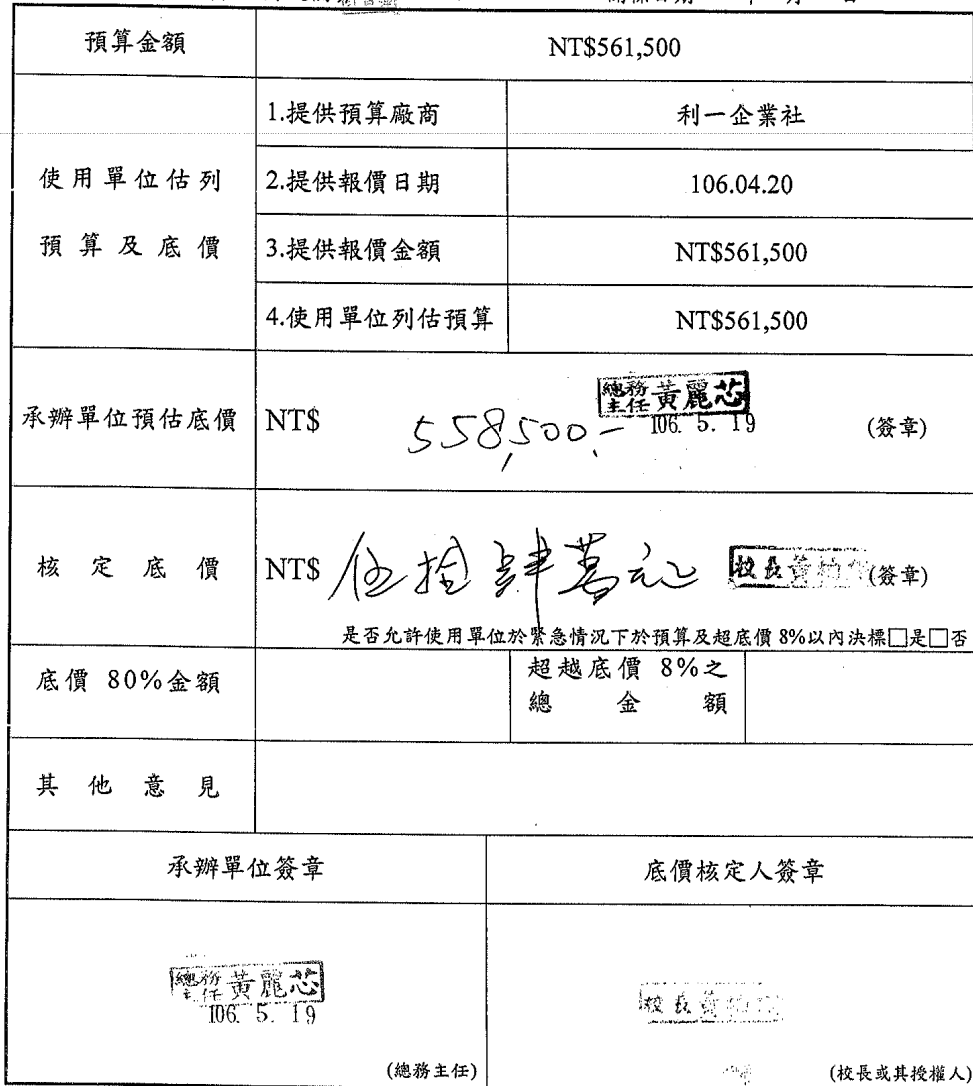 預算金額 NT$561,500
使用單位估列
預算及底價
1.提供預算廠商 利一企業社
2.提供報價日期 106.04.20
3.提供報價金額 NT$561,500
4.使用單位列估預算 NT$561,500
承辦單位預估底價 NT$ 558,500.- 總務主任 黃麗芯 106. 5. 19 (簽章)
核定底價 NT$ 伍拾肆萬元 校長黃 (簽章)
是否允許使用單位於緊急情況下於預算及超底價 8%以內決標□是□否
底價 80%金額
超越底價 8%之
總金額
其他意見
承辦單位簽章 底價核定人簽章
總務主任 黃麗芯
106. 5. 19
校長黃
(總務主任) (校長或其授權人)